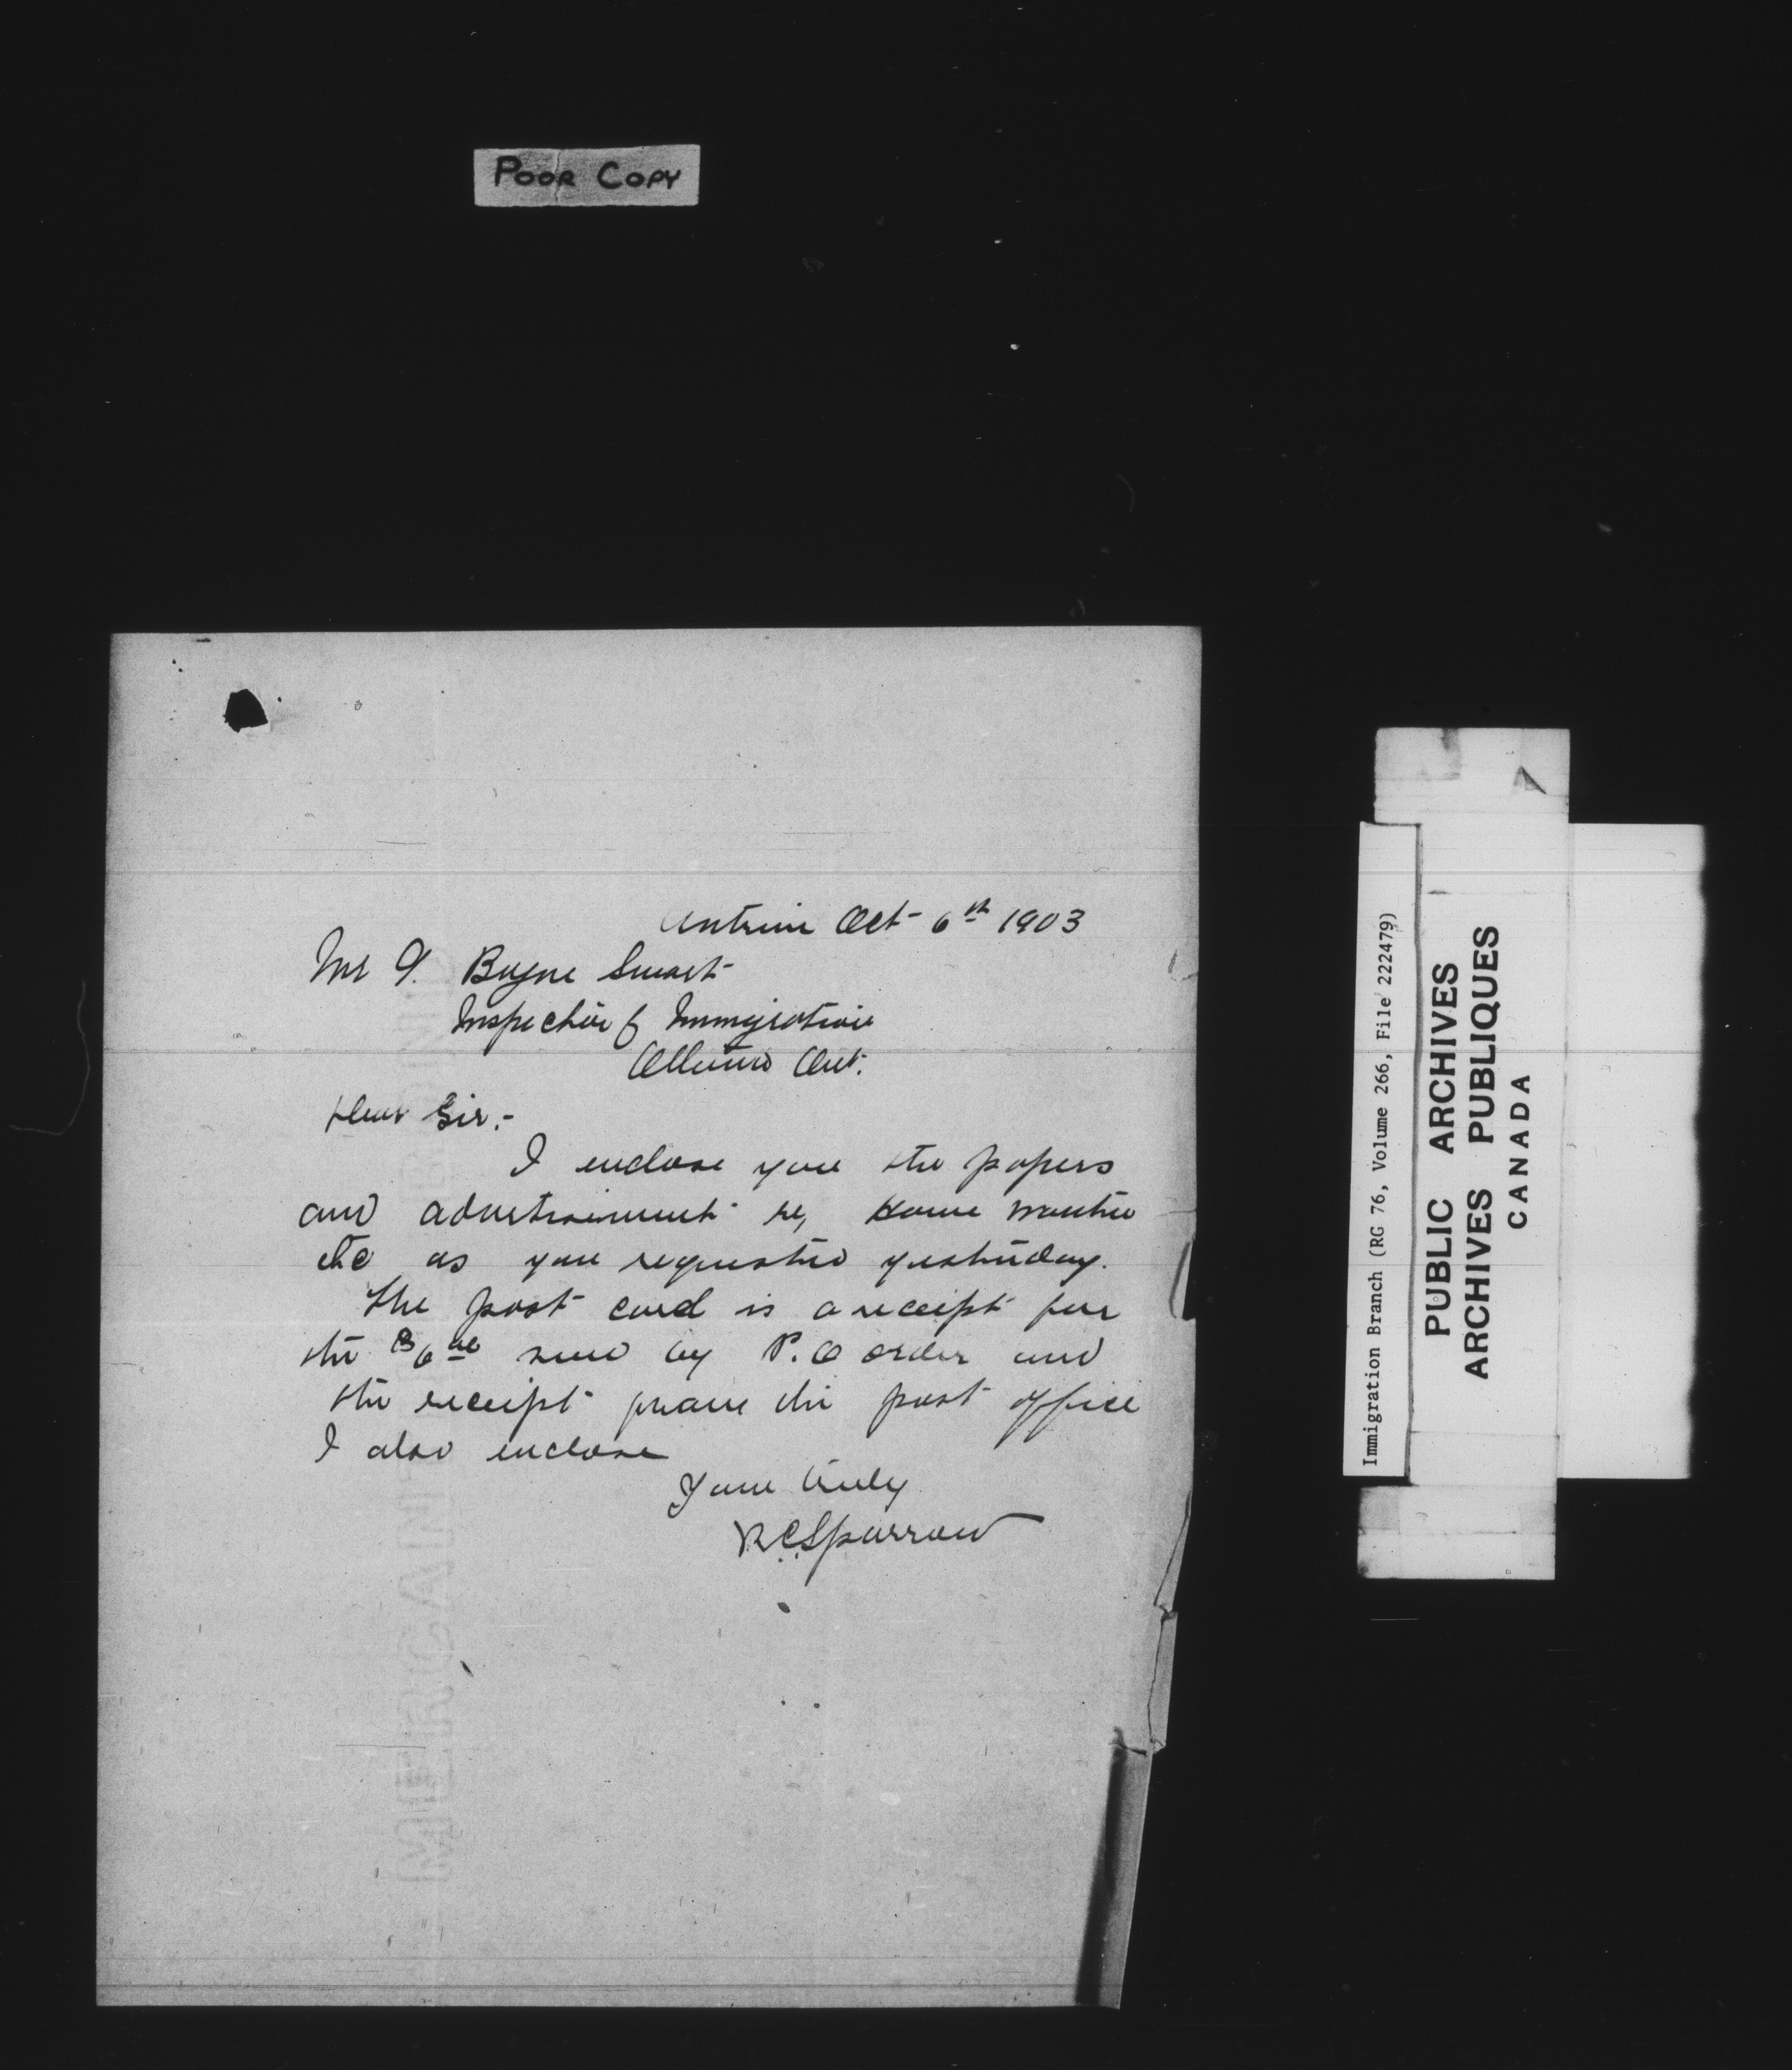 POOR COPY
Antrim Oct 6th 1903
Mr G. Bogue Smart
Inspector of Immigration
Ottawa Ont.
Dear Sir:-
I enclose you the papers
and advertisement re, Home wanted
etc as you requested yesterday.
The post card is a receipt for
the $6.00 send by P.O order and
the receipt from the post office
I also enclose
Yours truly
R C Sparrow
Immigration Branch (RG 76, Volume 266, File 222479)
PUBLIC ARCHIVES
ARCHIVES PUBLIQUES
CANADA